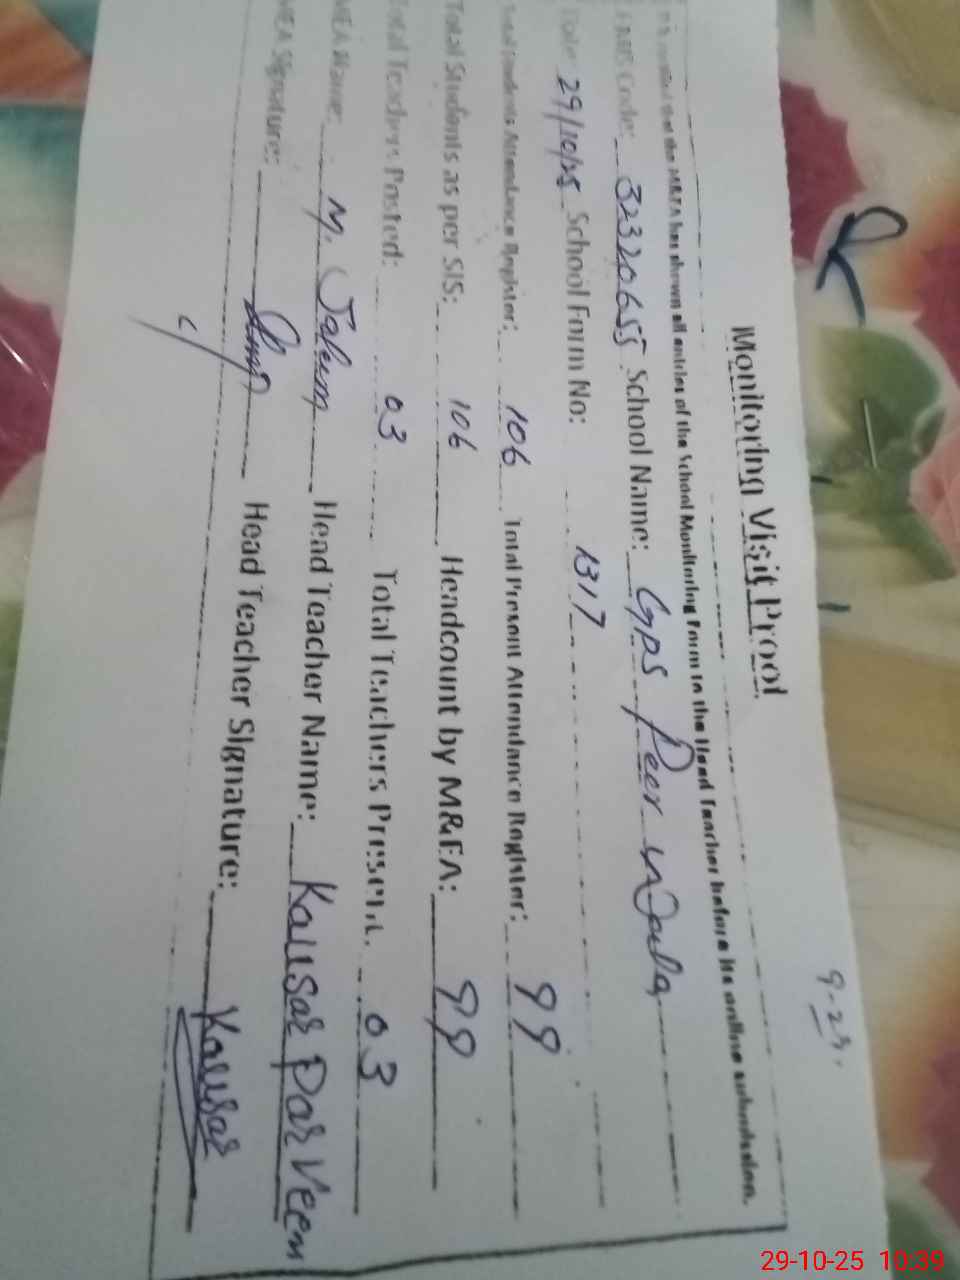 9-25.
Monitoring Visit Proof
It is certified that the M&EA has shown all entries of the School Monitoring Form to the Head Teacher before its online submission.
EMIS Code: 32320655 School Name: Gps Peer wala
Date: 29/10/25 School Form No: 1317
Total Students Attendance Register: 106 Total Present Attendance Register: 99
Total Students as per SIS: 106 Headcount by M&EA: 99
Total Teachers Posted: 03 Total Teachers Present: 03
MEA Name: M. Saleem Head Teacher Name: Kausar Parveen
MEA Signature: Head Teacher Signature: Kausar
29-10-25 10:39